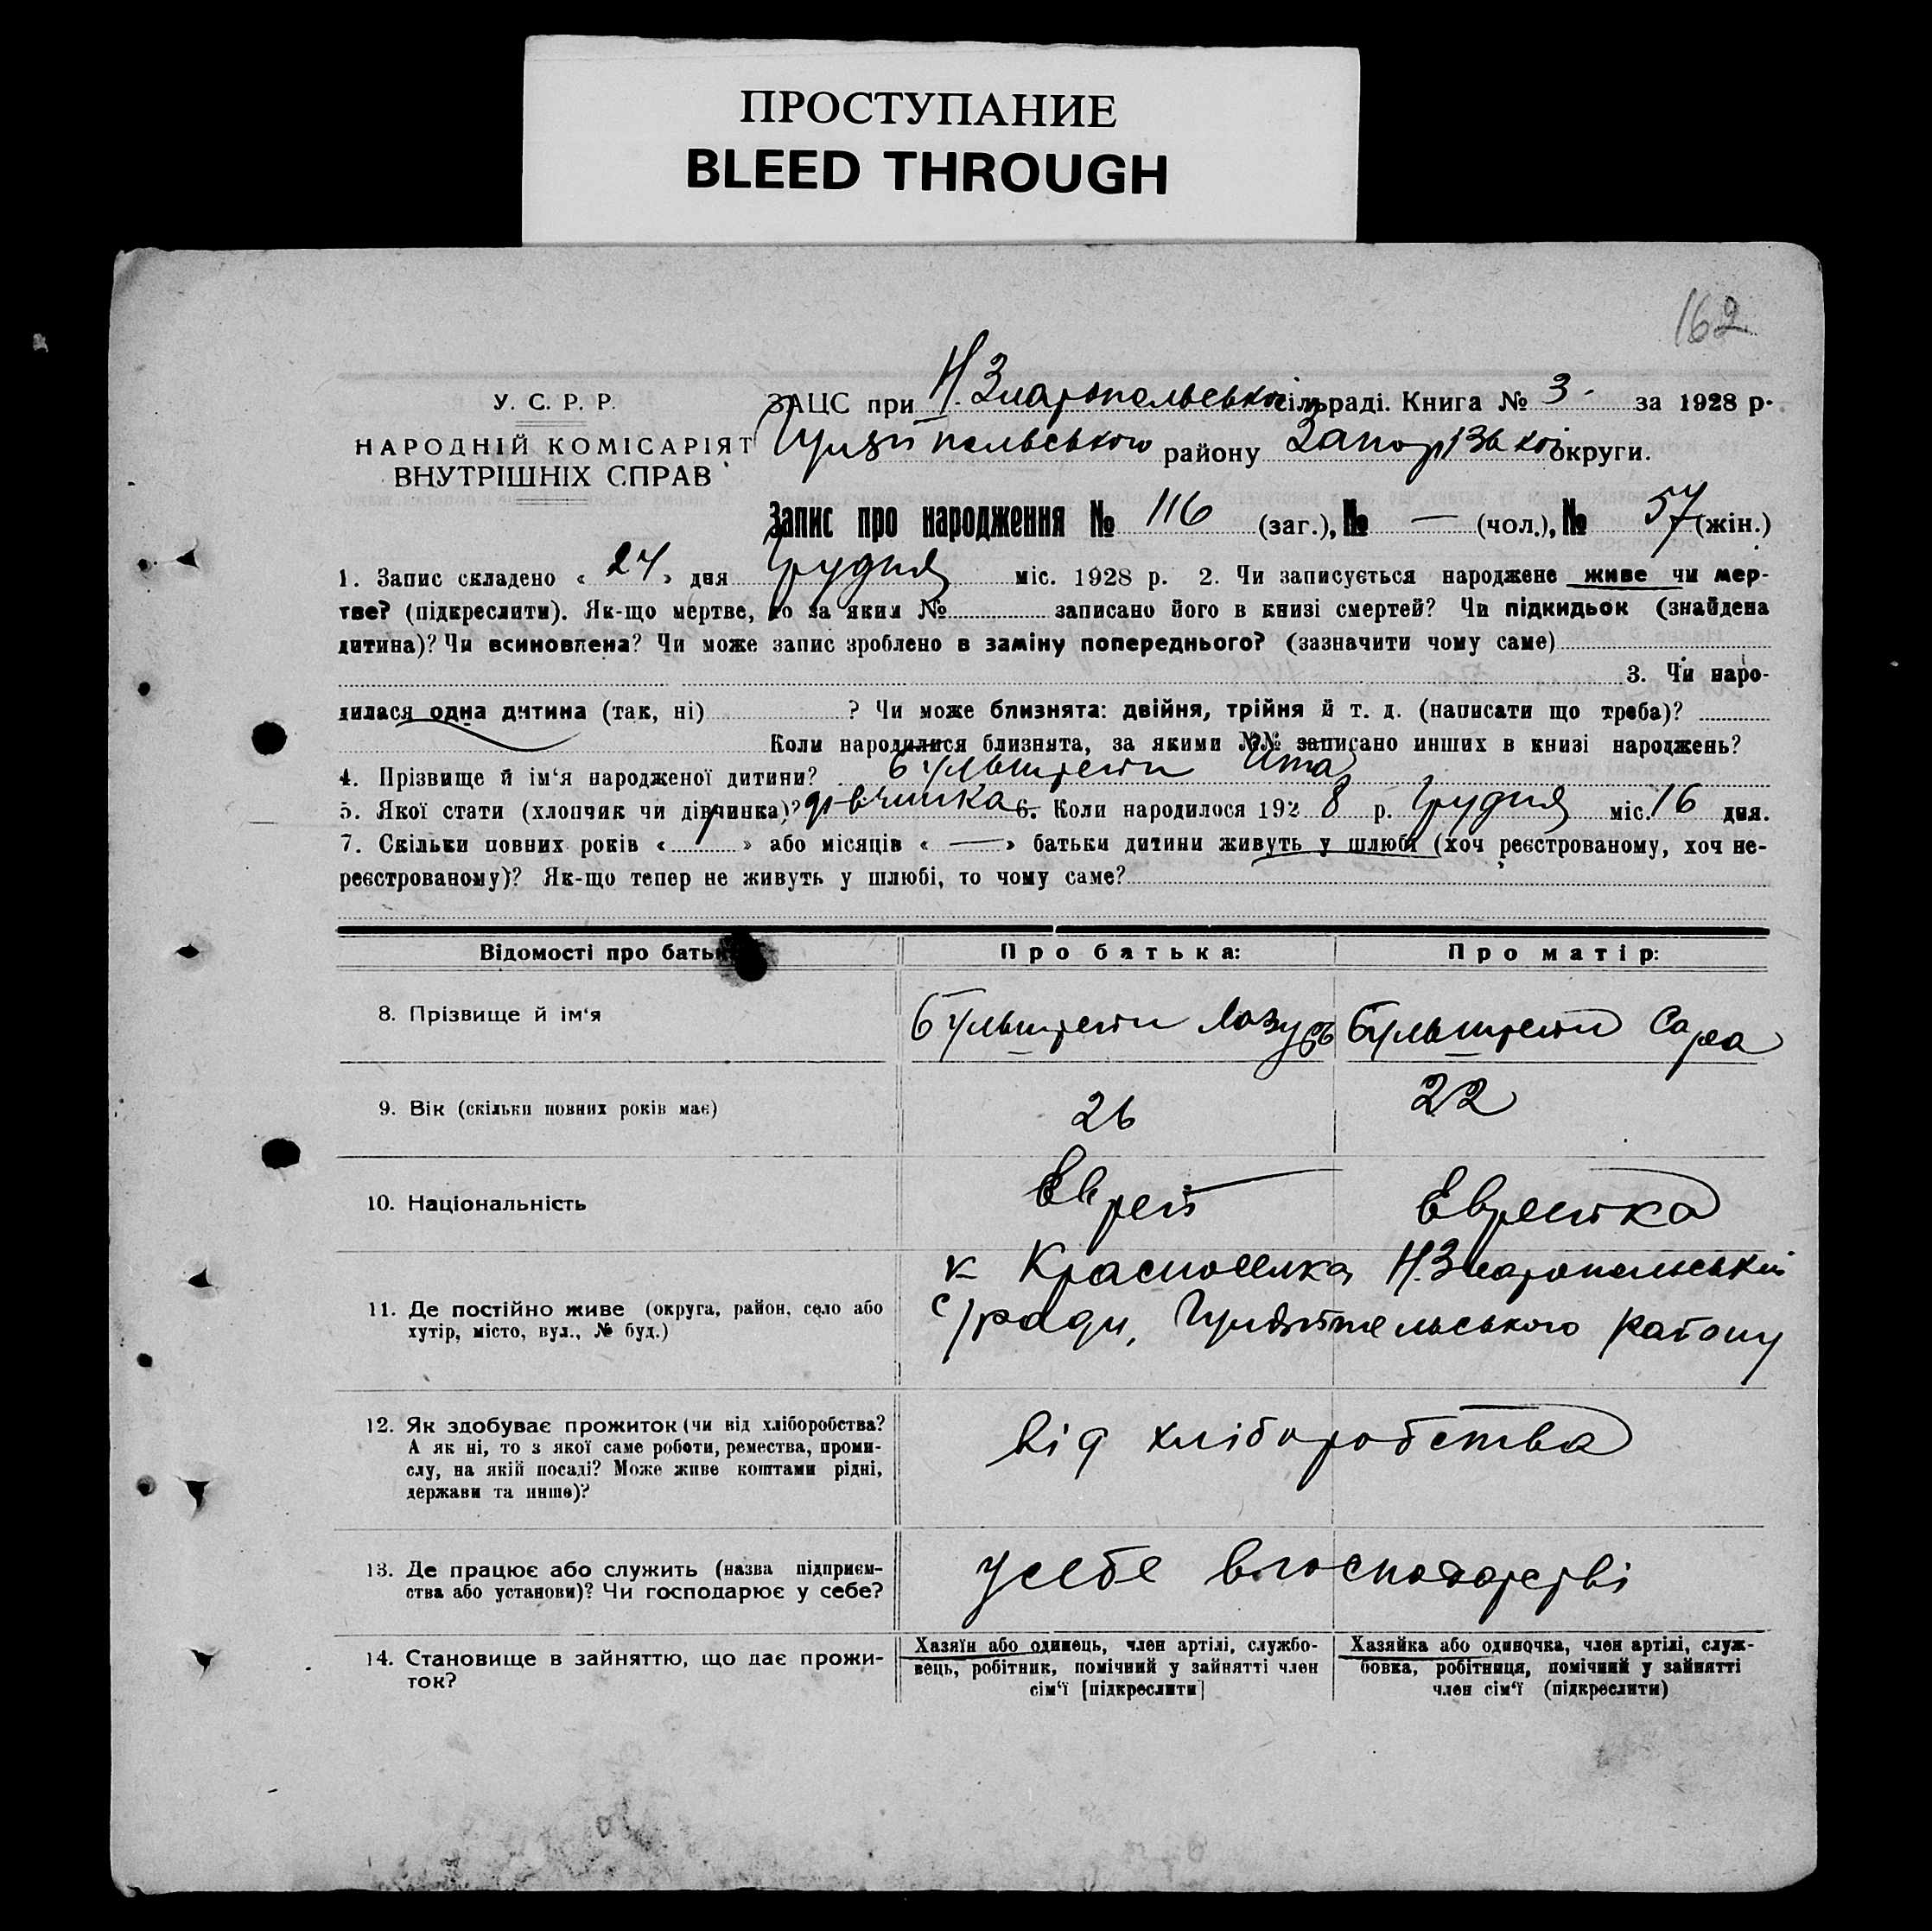 ПРОСТУПАНИЕ
BLEED THROUGH
162
У. С. Р. Р.
НАРОДНІЙ КОМІСАРІЯТ
ВНУТРІШНІХ СПРАВ
ЗАЦС при Н. Златопольській сільраді. Книга № 3 за 1928 р.
Гуляйпольського району Запорізької округи.
Запис про народження № 116 (заг.), № — (чол.), № 57 (жін.)
1. Запис складено « 24 » дня Грудня міс. 1928 р. 2. Чи записується народжене живе чи мер-
тве? (підкреслити). Як-що мертве, то за яким № записано його в книзі смертей? Чи підкидьок (знайдена
дитина)? Чи всиновлена? Чи може запис зроблено в заміну попереднього? (зазначити чому саме)
3. Чи наро-
дилася одна дитина (так, ні) ? Чи може близнята: двійня, трійня й т. д. (написати що треба)?
Коли народилися близнята, за якими №№ записано инших в книзі народжень?
4. Прізвище й ім'я народженої дитини? Бульштейн Ита
5. Якої стати (хлопчик чи дівчинка)? дівчинка 6. Коли народилося 1928 р. Грудня міс. 16 дня.
7. Скільки повних років « » або місяців « — » батьки дитини живуть у шлюбі (хоч реєстрованому, хоч не-
реєстрованому)? Як-що тепер не живуть у шлюбі, то чому саме?
Відомості про батьк
Про батька:
Про матір:
8. Прізвище й ім'я
Бульштейн Лазурь
Бульштейн Сара
9. Вік (скільки повних років має)
26
22
10. Національність
Еврей
Еврейка
11. Де постійно живе (округа, район, село або
хутір, місто, вул., № буд.)
к Красноселка Н. Златопольській
с/ради, Гуляйпельського району
12. Як здобуває прожиток (чи від хліборобства?
А як ні, то з якої саме роботи, ремества, проми-
слу, на якій посаді? Може живе коштами рідні,
держави та инше)?
від хліборобства
13. Де працює або служить (назва підприєм-
ства або установи)? Чи господарює у себе?
у себе в господарстві
14. Становище в зайняттю, що дає прожи-
ток?
Хазяїн або одинець, член артілі, службо-
вець, робітник, помічний у зайнятті член
сім'ї [підкреслити]
Хазяйка або одиночка, член артілі, служ-
бовка, робітниця, помічний у зайнятті
член сім'ї (підкреслити)